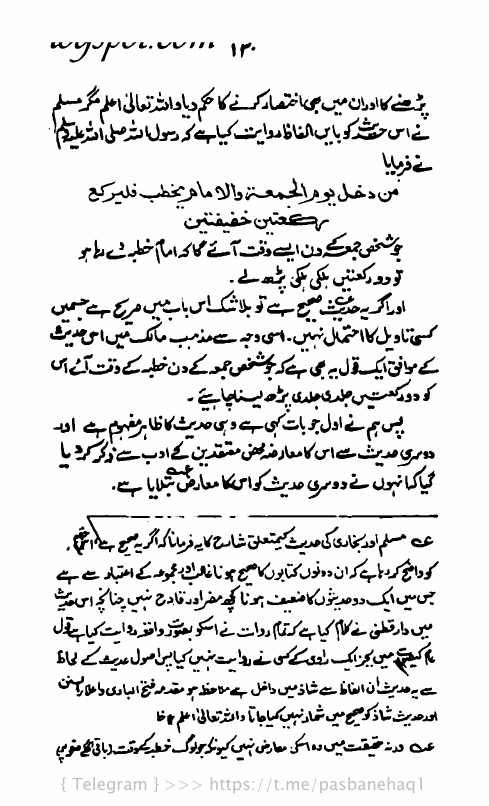 ۱۳۰
پڑھنے کا اور ان میں بھی اختصار کرنے کا حکم دیا واللہ تعالیٰ اعلم مگر مسلم
نے اس حدیث کو بایں الفاظ روایت کیا ہے کہ رسول اللہ صلی اللہ علیہ وسلم
نے فرمایا
من دخل یوم الجمعۃ والامام یخطب فلیرکع
رکعتین خفیفتین
جو شخص جمعہ کے دن ایسے وقت آئے گا کہ امام خطبہ دے رہا ہو
تو دو رکعتیں ہلکی ہلکی پڑھ لے۔
اور اگر یہ حدیث صحیح ہے تو بلاشک اس باب میں صریح ہے جسمیں
کسی تاویل کا احتمال نہیں۔ اسی وجہ سے مذہب مالک میں اس حدیث
کے موافق ایک قول یہ بھی ہے کہ جو شخص جمعہ کے دن خطبہ کے وقت آئے اس
کو دو رکعتیں جلدی جلدی پڑھ لینا چاہئے۔
پس ہم نے اول جو بات کہی ہے وہی حدیث کا ظاہر مفہوم ہے اور
دوسری حدیث سے اس کا معارضہ محض متقدمین کے ادب سے ذکر کر دیا
گیا کہ انہوں نے دوسری حدیث کو اس کا معارض بتلایا ہے۔
عہ مسلم اور بخاری کی حدیث کے متعلق شارح کا یہ فرمانا کہ اگر یہ صحیح ہے
کو واضح کر رہا ہے کہ ان دونوں کتابوں کا صحیح ہونا غالب اور مجموعہ کے اعتبار سے ہے
جس میں ایک دو حدیثوں کا ضعیف ہونا کچھ مضر اور قادح نہیں چنانچہ اس حدیث
میں دارقطنی نے کلام کیا ہے کہ تمام روات نے اسکو بصورت واقعہ روایت کیا ہے قول
میں بجز ایک راوی کے کسی نے روایت نہیں کیا پس اصول حدیث کے لحاظ
سے یہ حدیث ان الفاظ سے شاذ میں داخل ہے ملاحظہ ہو مقدمہ فتح الباری واعلاء السنن
اور حدیث شاذ کو صحیح میں شمار نہیں کیا جاتا واللہ تعالیٰ اعلم
عہ ورنہ حقیقت میں وہ اسکی معارض نہیں کیونکہ جو لوگ خطبہ کے وقت (باقی اگلے صفحہ پر)
{ Telegram } >>> https://t.me/pasbanehaq1